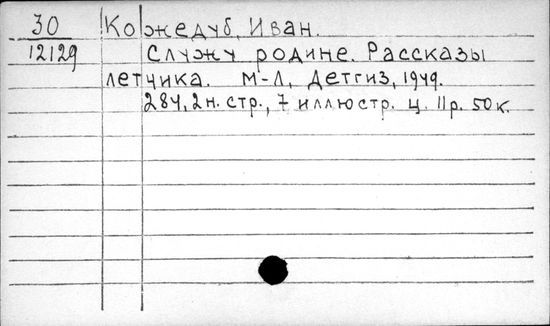 30 Кожедуб, Иван.
12129 Служу родине. Рассказы
летчика. М-Л, Детгиз, 1949.
284, 2 н. стр., 7 иллюстр. ц. 11 р. 50 к.